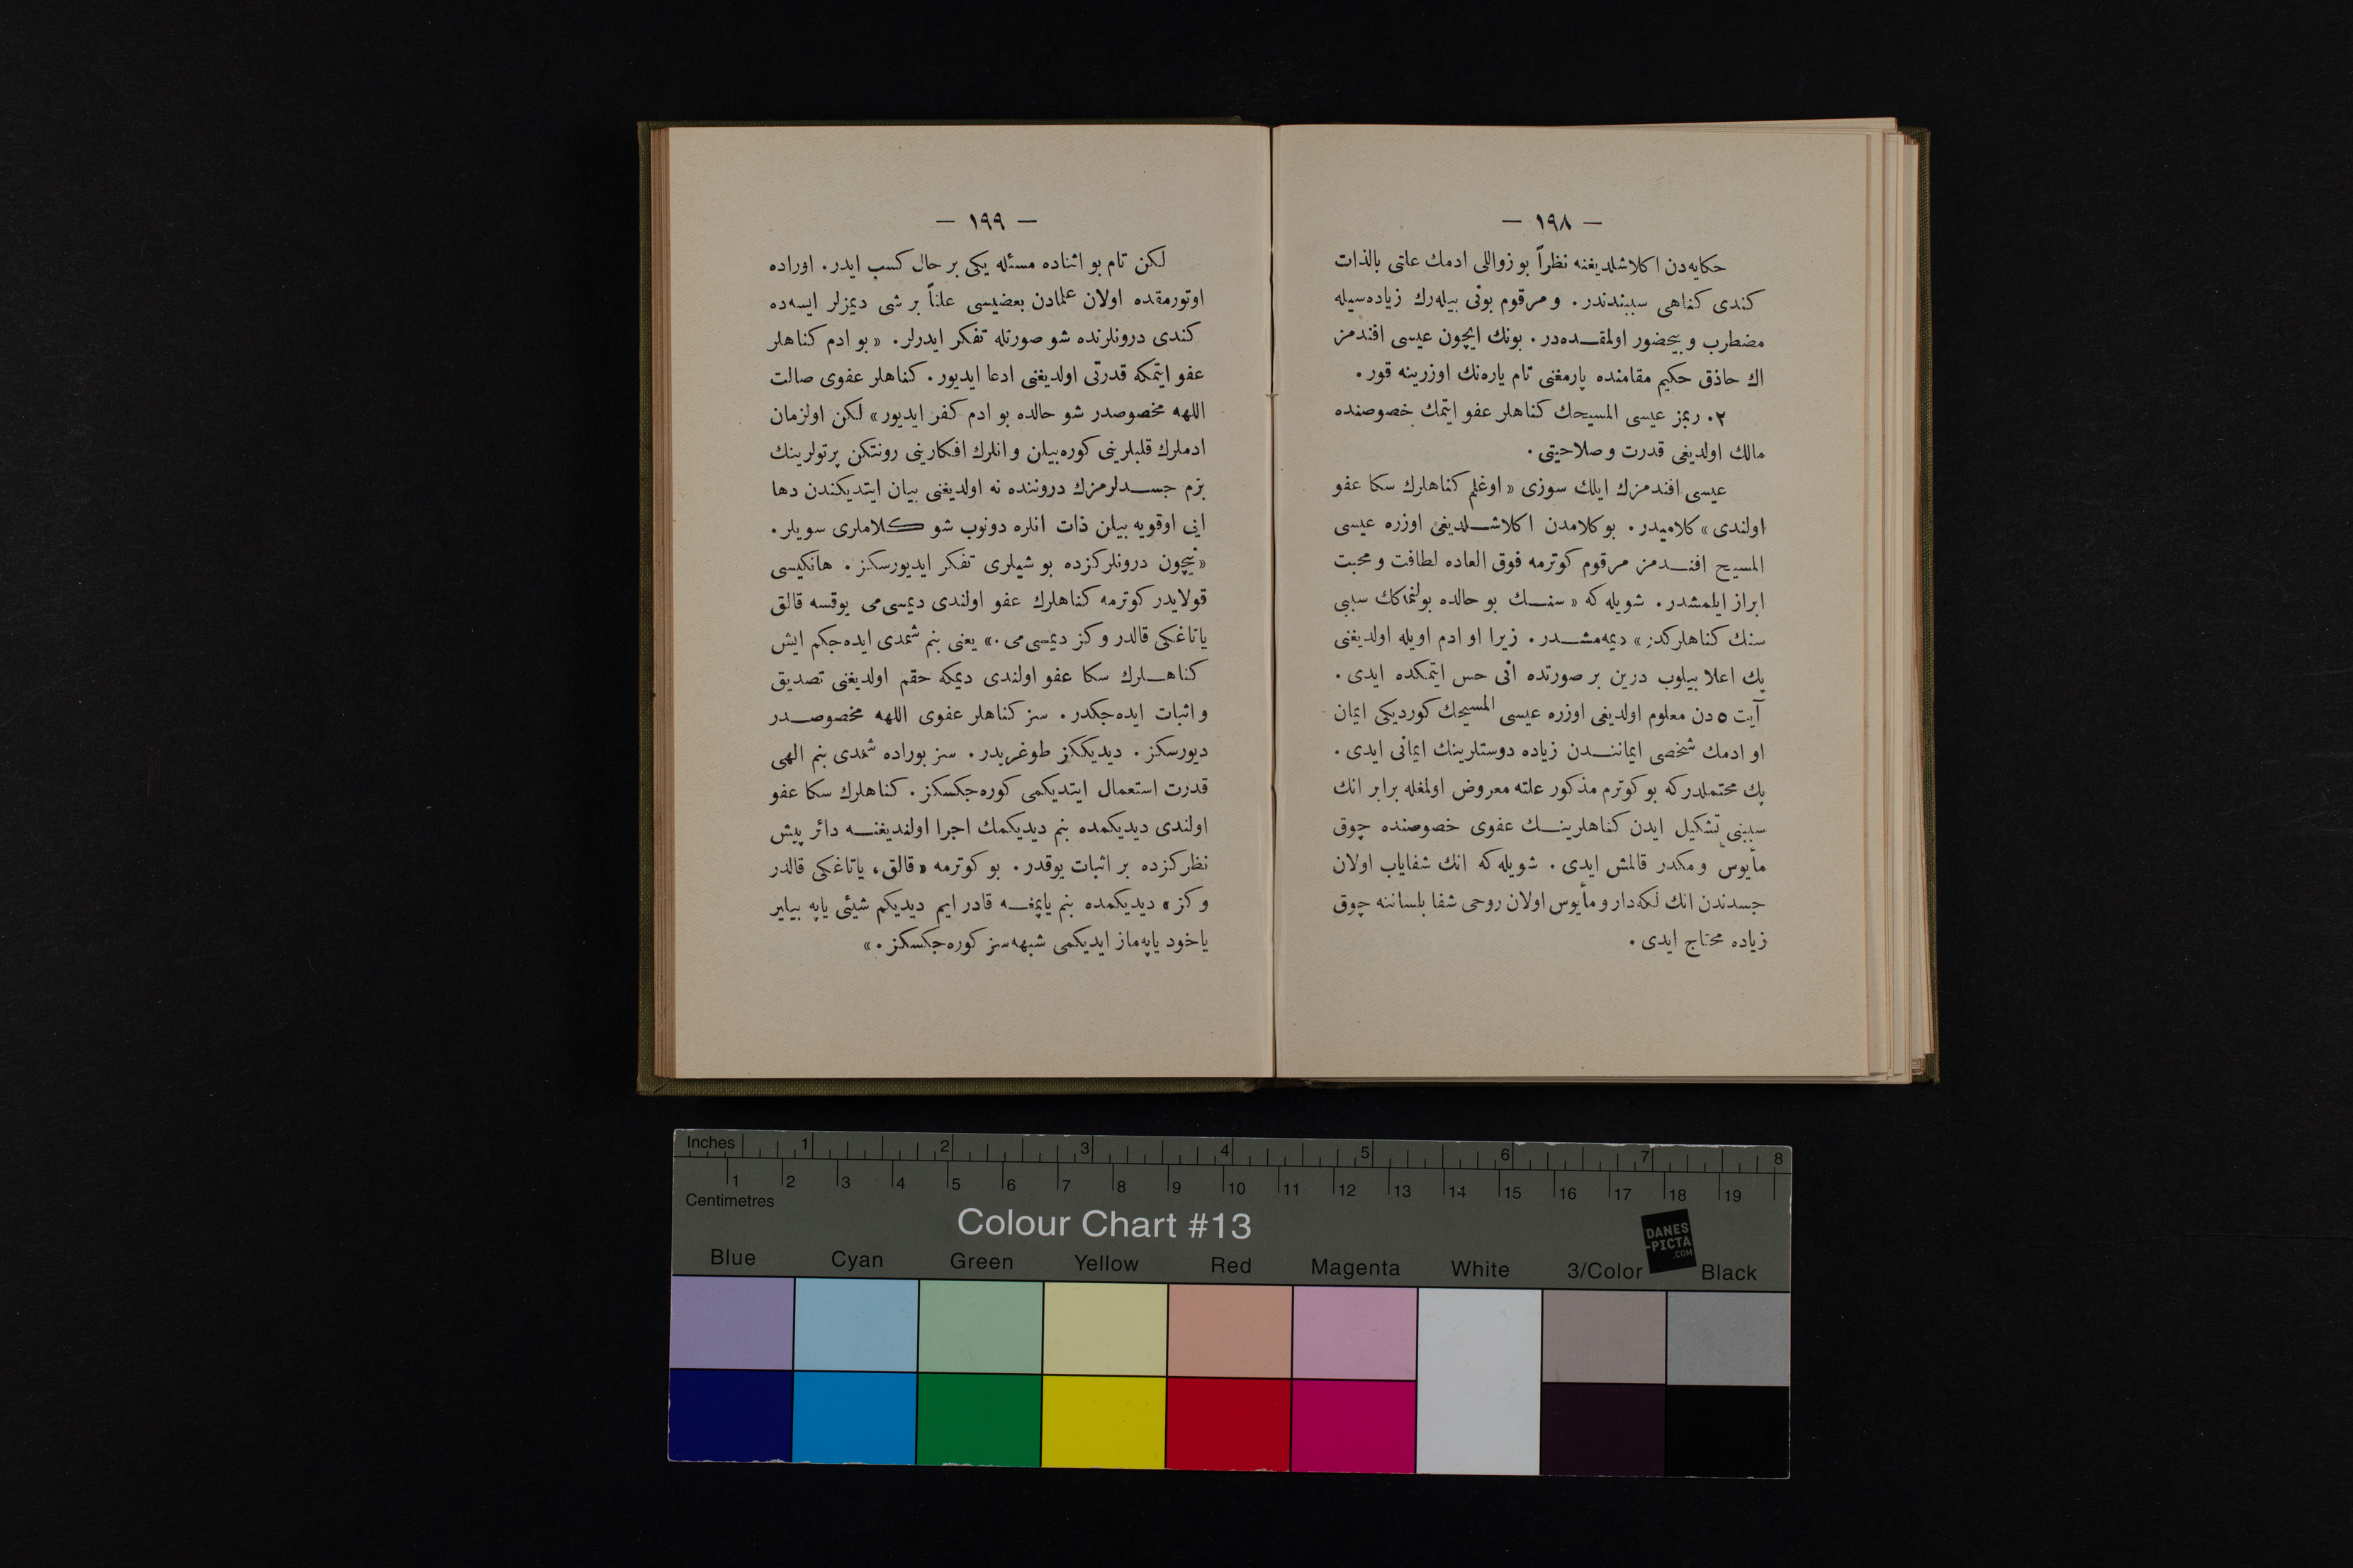 — ١٩٨ —
حكایه‌دن اكلاشلدیغنه نظراً بو زواللی ادمك علتی بالذات
كندی كناهی سببندندر. و مرقوم بونی بیله‌رك زیاده‌سیله
مضطرب و بیحضور اولمقده‌در. بونك ایچون عیسی افندمز
اك حاذق حكیم مقامنده پارمغنی تام یاره‌نك اوزرینه قور.
٢. ربمز عیسی المسیحك كناهلر عفو ایتمك خصوصنده
مالك اولدیغی قدرت و صلاحیتی.
عیسی افندمزك ایلك سوزی « اوغلم كناهلرك سكا عفو
اولندی » كلامیدر. بو كلامدن اكلاشلدیغی اوزره عیسی
المسیح افندمز مرقوم كوترمه فوق العاده لطافت و محبت
ابراز ایلمشدر. شویله كه « سنك بو حالده بولنمه‌كك سببی
سنك كناهلركدر » دیمه‌مشدر. زیرا او ادم اویله اولدیغنی
پك اعلا بیلوب درین بر صورتده انی حس ایتمكده ایدی.
آیت ٥ دن معلوم اولدیغی اوزره عیسی المسیحك كوردیكی ایمان
او ادمك شخصی ایمانندن زیاده دوستلرینك ایمانی ایدی.
پك محتملدر كه بو كوترم مذكور علته معروض اولمغله برابر انك
سببنی تشكیل ایدن كناهلرینك عفوی خصوصنده چوق
مأیوس و مكدر قالمش ایدی. شویله كه انك شفایاب اولان
جسدندن انك لكه‌دار و مأیوس اولان روحی شفا بلساننه چوق
زیاده محتاج ایدی.
— ١٩٩ —
لكن تام بو اثناده مسئله یكی بر حال كسب ایدر. اوراده
اوتورمقده اولان علمادن بعضیسی علناً بر شی دیمزلر ایسه‌ده
كندی درونلرنده شو صورتله تفكر ایدرلر. « بو ادم كناهلر
عفو ایتمكه قدرتی اولدیغنی ادعا ایدیور. كناهلر عفوی صالت
اللهه مخصوصدر شو حالده بو ادم كفر ایدیور » لكن اولزمان
ادملرك قلبلرینی كوره‌بیلن و انلرك افكارینی رونتكن پرتولرینك
بزم جسدلرمزك دروننده نه اولدیغنی بیان ایتدیكندن دها
ایی اوقویه بیلن ذات انلره دونوب شو كلاملری سویلر.
« نیچون درونلركزده بو شیلری تفكر ایدیورسكز. هانكیسی
قولایدر كوترمه كناهلرك عفو اولندی دیمسی‌می یوقسه قالق
یاتاغكی قالدر و كز دیمسی‌می. » یعنی بنم شمدی ایده‌جكم ایش
كناهلرك سكا عفو اولندی دیمكه حقم اولدیغنی تصدیق
و اثبات ایده‌جكدر. سز كناهلر عفوی اللهه مخصوصدر
دیورسكز. دیدیككز طوغریدر. سز بوراده شمدی بنم الهی
قدرت استعمال ایتدیكمی كوره‌جكسكز. كناهلرك سكا عفو
اولندی دیدیكمده بنم دیدیكمك اجرا اولندیغنه دائر پیش
نظركزده بر اثبات یوقدر. بو كوترمه « قالق، یاتاغكی قالدر
و كز » دیدیكمده بنم یاپمغه قادر ایم دیدیكم شیئی یاپه بیلیر
یاخود یاپه‌ماز ایدیكمی شبهه‌سز كوره‌جكسكز. »
Inches 1 2 3 4 5 6 7 8
1 2 3 4 5 6 7 8 9 10 11 12 13 14 15 16 17 18 19
Centimetres
Colour Chart #13
DANES
-PICTA
.COM
Blue Cyan Green Yellow Red Magenta White 3/Color Black